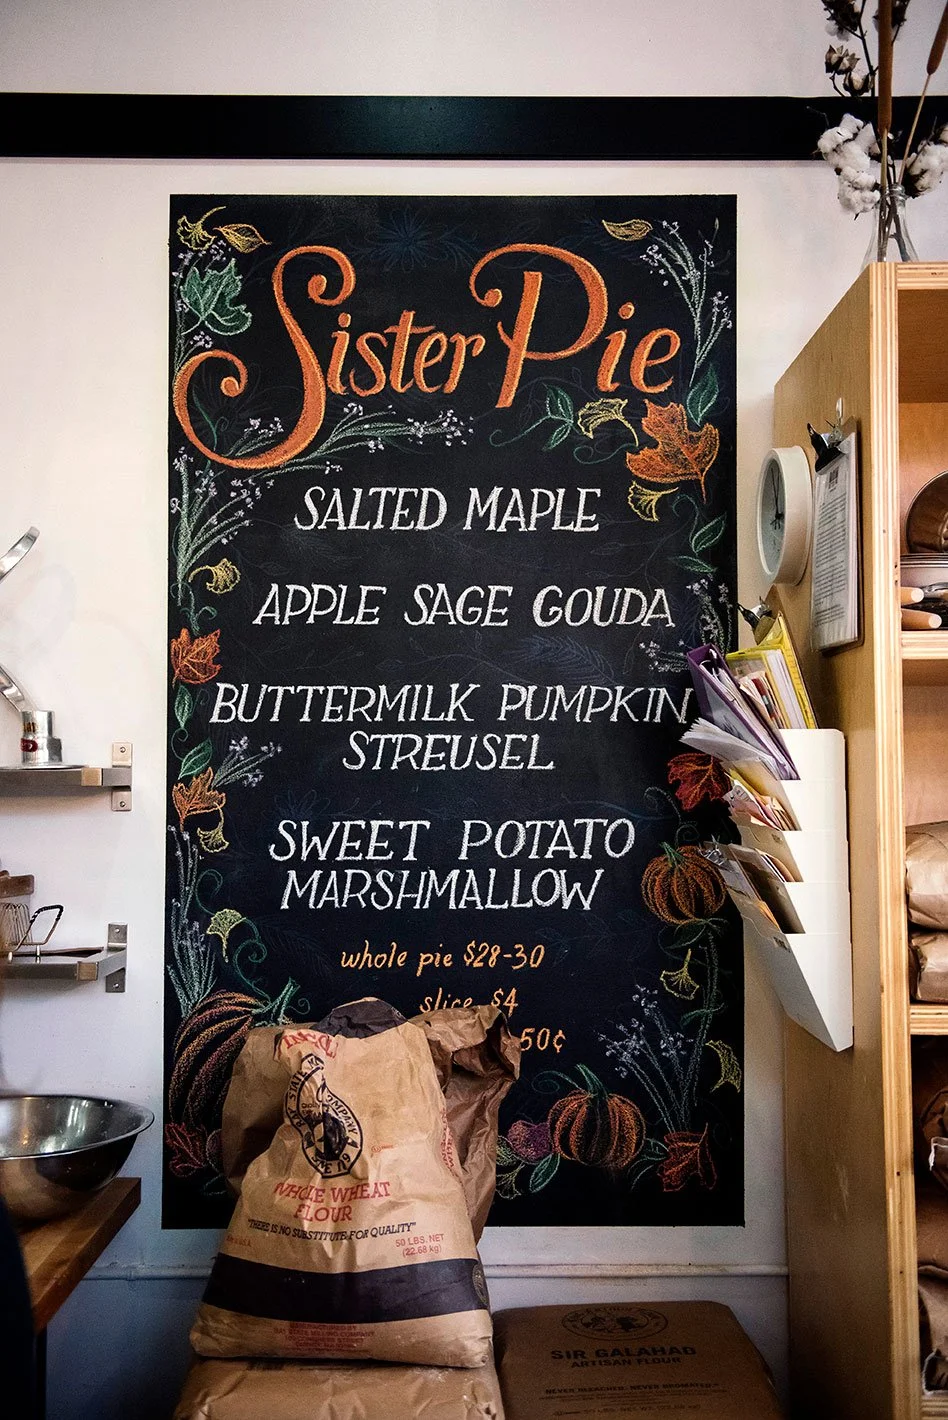 Sister Pie
SALTED MAPLE
APPLE SAGE GOUDA
BUTTERMILK PUMPKIN
STREUSEL
SWEET POTATO
MARSHMALLOW
whole pie $28-30
slice $4
50¢
WHOLE WHEAT
FLOUR
"THERE IS NO SUBSTITUTE FOR QUALITY"
50 LBS. NET
(22.68 kg)
SIR GALAHAD
ARTISAN FLOUR
NEVER BLEACHED. NEVER BROMATED.